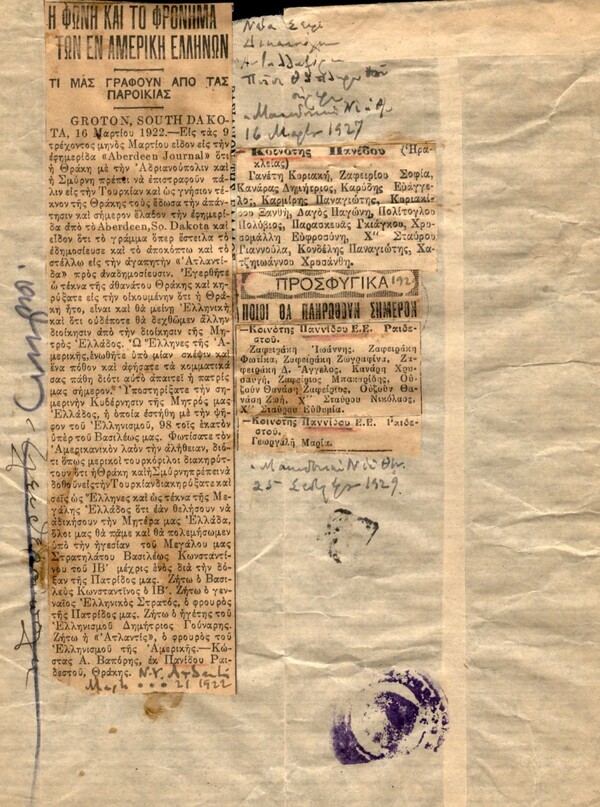 Η ΦΩΝΗ ΚΑΙ ΤΟ ΦΡΟΝΗΜΑ
ΤΩΝ ΕΝ ΑΜΕΡΙΚΗ ΕΛΛΗΝΩΝ
ΤΙ ΜΑΣ ΓΡΑΦΟΥΝ ΑΠΟ ΤΑΣ
ΠΑΡΟΙΚΙΑΣ
GROTON, SOUTH DAKO-
TA, 16 Μαρτίου 1922.—Εἰς τὰς 9
τρέχοντος μηνὸς Μαρτίου εἶδον εἰς τὴν
ἐφημερίδα «Aberdeen Journal» ὅτι
ἡ Θράκη μὲ τὴν Ἀδριανούπολιν καὶ
ἡ Σμύρνη πρέπει νὰ ἐπιστραφοῦν πά-
λιν εἰς τὴν Τουρκίαν καὶ ὡς γνήσιον τέκ-
νον τῆς Θράκης τοὺς ἔδωσα τὴν ἀπάν-
τησιν καὶ σήμερον ἔλαβον τὴν ἐφημερί-
δα ἀπὸ τὸ Aberdeen, So. Dakota καὶ
εἶδον ὅτι τὸ γράμμα ὅπερ ἔστειλα τὸ
ἐδημοσίευσε καὶ τὸ ἀποκόπτω καὶ τὸ
στέλλω εἰς τὴν ἀγαπητὴν «Ἀτλαντί-
δα» πρὸς ἀναδημοσίευσιν. Ἐγερθῆτε
ὦ τέκνα τῆς ἀθανάτου Θράκης καὶ κη-
ρύξατε εἰς τὴν οἰκουμένην ὅτι ἡ Θρά-
κη ἦτο, εἶναι καὶ θὰ μείνῃ Ἑλληνικὴ
καὶ ὅτι οὐδέποτε θὰ δεχθῶμεν ἄλλην
διοίκησιν ἀπὸ τὴν διοίκησιν τῆς Μη-
τρὸς Ἑλλάδος. Ὦ Ἕλληνες τῆς Ἀ-
μερικῆς, ἑνωθῆτε ὑπὸ μίαν σκέψιν καὶ
ἕνα πόθον καὶ ἀφήσατε τὰ κομματικά
σας πάθη διότι αὐτὸ ἀπαιτεῖ ἡ πατρίς
μας σήμερον. Ὑποστηρίξατε τὴν ση-
μερινὴν Κυβέρνησιν τῆς Μητρός μας
Ἑλλάδος, ἡ ὁποία ἐστήθη μὲ τὴν ψῆ-
φον τοῦ Ἑλληνισμοῦ, 98 τοῖς ἑκατὸν
ὑπὲρ τοῦ Βασιλέως μας. Φωτίσατε τὸν
Ἀμερικανικὸν λαὸν τὴν ἀλήθειαν, διό-
τι ὅπως μερικοὶ τουρκόφιλοι διακηρύτ-
τουν ὅτι ἡ Θράκη καὶ ἡ Σμύρνη πρέπει νὰ
δοθοῦν εἰς τὴν Τουρκίαν διακηρύξατε καὶ
σεῖς ὡς Ἕλληνες καὶ ὡς τέκνα τῆς Με-
γάλης Ἑλλάδος ὅτι ἐὰν θελήσουν νὰ
ἀδικήσουν τὴν Μητέρα μας Ἑλλάδα,
ὅλοι μας θὰ πᾶμε καὶ θὰ πολεμήσωμεν
ὑπὸ τὴν ἡγεσίαν τοῦ Μεγάλου μας
Στρατηλάτου Βασιλέως Κωνσταντί-
νου τοῦ ΙΒ΄ μέχρις ἑνὸς διὰ τὴν δό-
ξαν τῆς Πατρίδος μας. Ζήτω ὁ Βασι-
λεὺς Κωνσταντῖνος ὁ ΙΒ΄. Ζήτω ὁ γεν-
ναῖος Ἑλληνικὸς Στρατός, ὁ φρουρὸς
τῆς Πατρίδος μας. Ζήτω ὁ ἡγέτης τοῦ
Ἑλληνισμοῦ Δημήτριος Γούναρης.
Ζήτω ἡ «Ἀτλαντίς», ὁ φρουρὸς τοῦ
Ἑλληνισμοῦ τῆς Ἀμερικῆς.—Κώ-
στας Α. Βαπόρης, ἐκ Πανίδου Ραι-
δεστοῦ, Θράκης.
21 1922
16 Μαρτ 1927
Κοινότης Πανίδου (Ἡρα-
κλείας)
Γανέτη Κοριακή, Ζαφειρίου Σοφία,
Κανάρας Δημήτριος, Καρύδης Εὐάγγε-
λος, Καρμίρης Παναγιώτης, Κυριακί-
δου Ξανθή, Λαγὸς Παγώνη, Πολίτογλου
Πολύβιος, Παρασκευᾶς Γκιάγκου, Χρυ-
σομάλλη Εὐφροσύνη, Χ" Σταύρου
Γιαννούλα, Κονδέλης Παναγιώτης, Χα-
τζηϊωάννου Χρυσάνθη.
ΠΡΟΣΦΥΓΙΚΑ
192
ΠΟΙΟΙ ΘΑ ΠΛΗΡΩΘΟΥΝ ΣΗΜΕΡΟΝ
—Κοινότης Παννίδου Ε.Ε. Ραιδε-
στοῦ.
Ζαφειράκη Ἰωάννης, Ζαφειράκη
Φωτίκα, Ζαφειράκη Ζωγραφίνα, Ζα-
φειράκη Δ. Ἄγγελος, Κανάρη Χρυ-
σαυγή, Ζαφείριος Μπακιρίδης, Οὐ-
ζοὺν Θανάση Ζαφείριος, Οὐζοὺν Θα-
νάση Ζωή, Χ" Σταύρου Νικόλαος,
Χ" Σταύρου Εὐθυμία.
—Κοινότης Παννίδου Ε.Ε. Ραιδε-
στοῦ.
Γεωργαλῆ Μαρία.